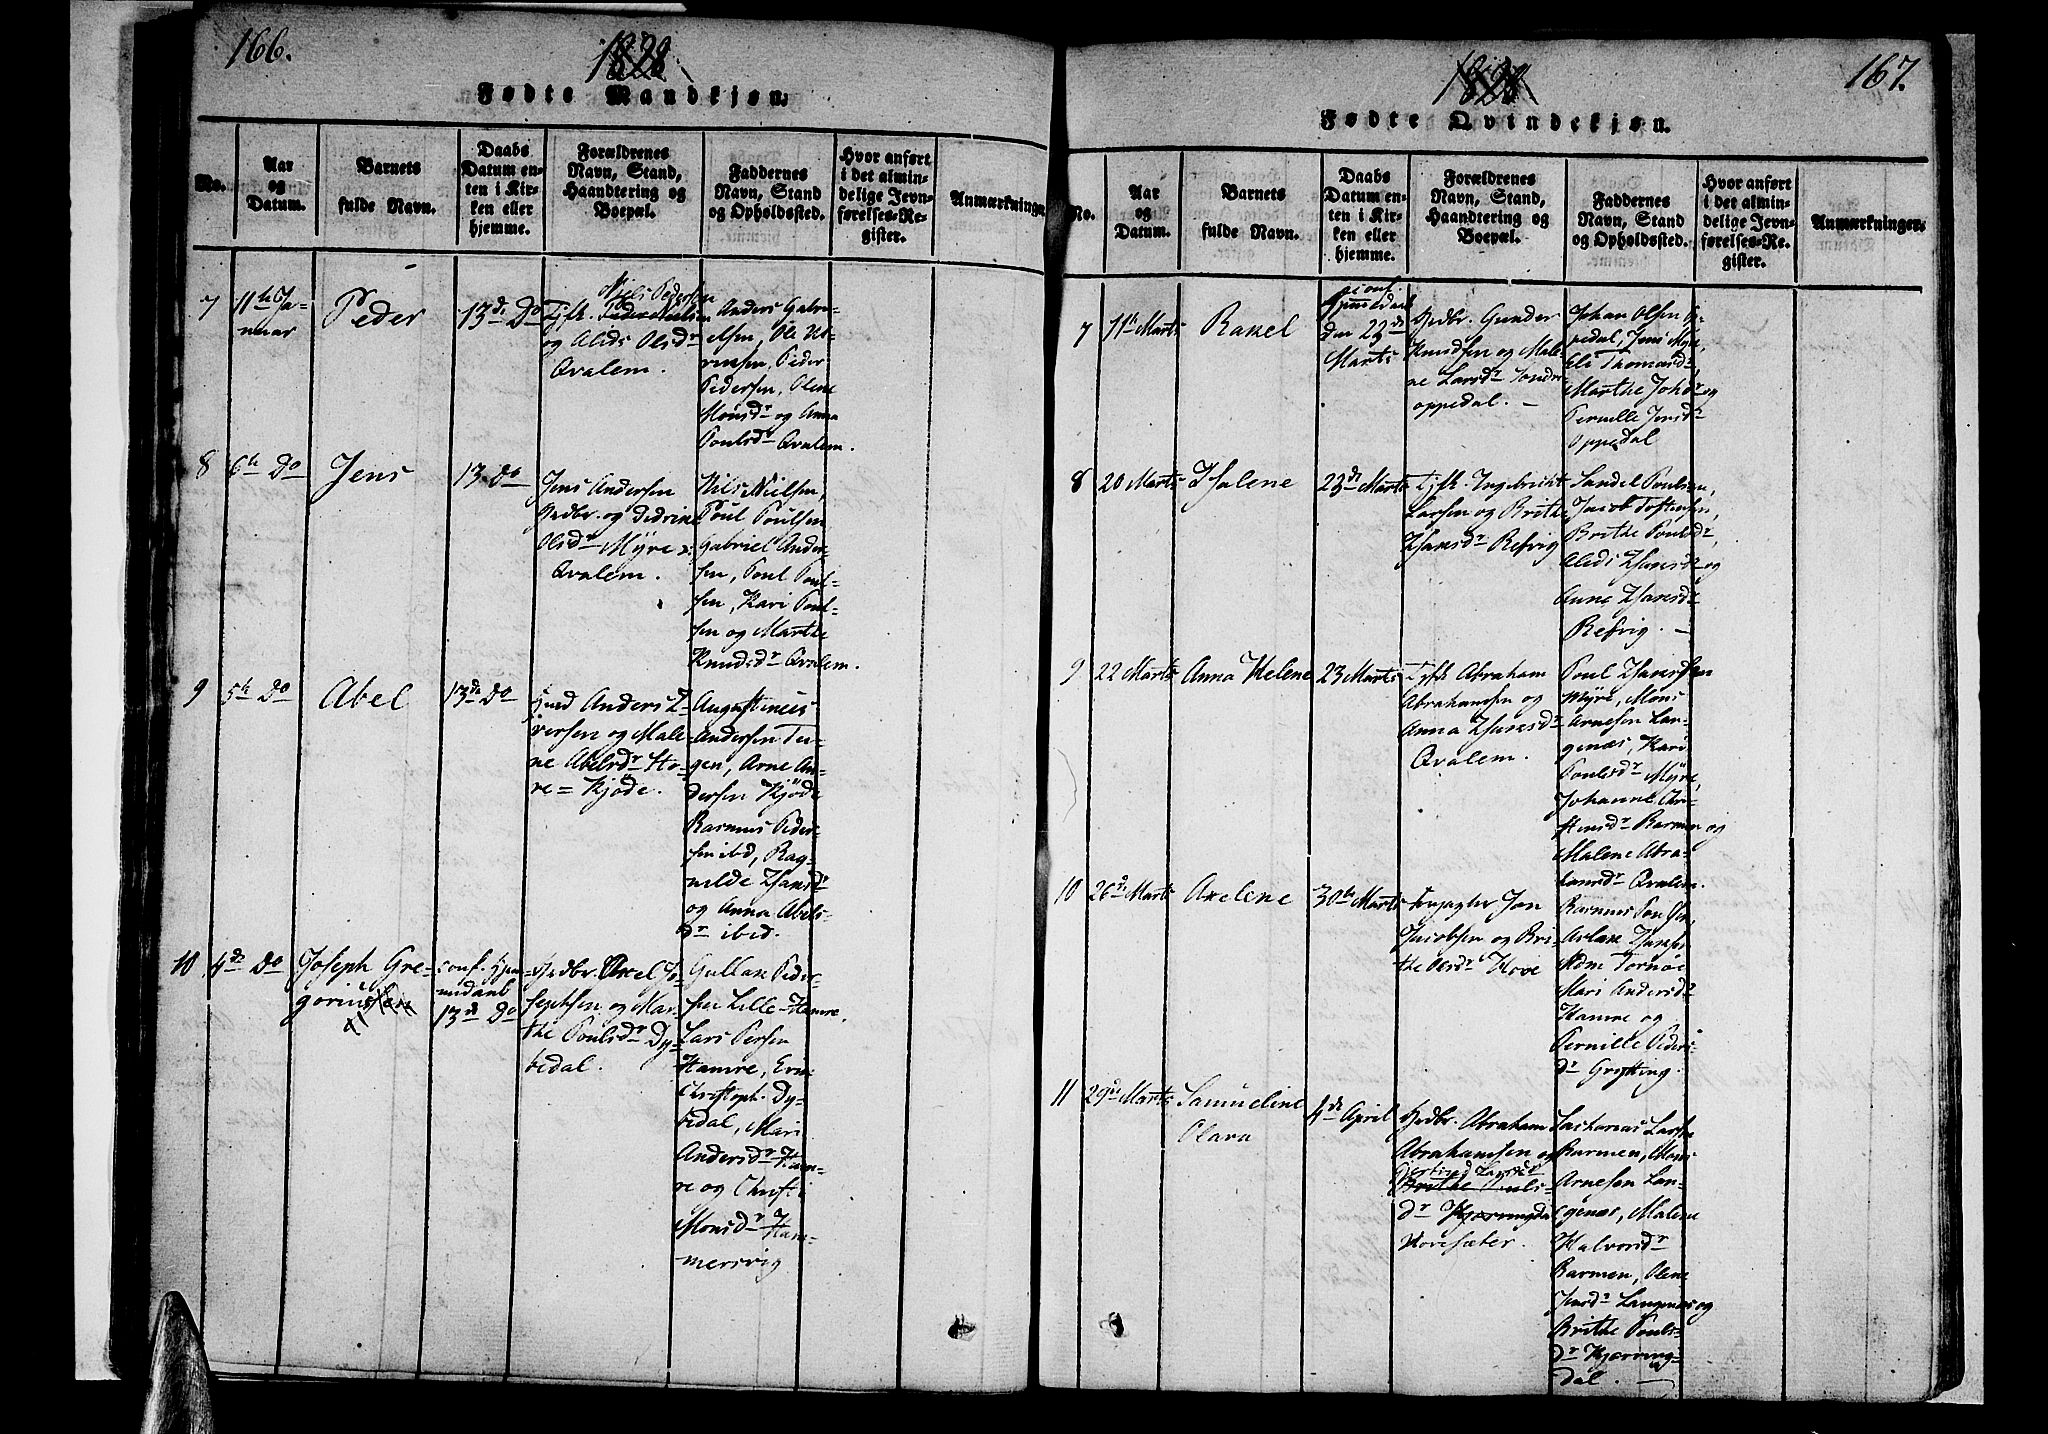 166.
Fødte Mandkjøn.
No.
Aar
og
Datum.
Barnets
fulde Navn.
Daabs
Datum en-
ten i Kir-
ken eller
hjemme.
Forældrenes
Navn, Stand,
Haandtering og
Boepæl.
Faddernes
Navn, Stand
og Opholdssted.
Hvor anført
i det almin-
delige Jevn-
førelses-Re-
gister.
Anmærkninger
7
11te Ja-
nuar
Peder
13de Do
Niels Pedersen
og Alids Olsdr
Qvalem.
Anders Gabri-
elsen, Ole
Peder
Pedersen, Olene
Monsdr og Anna
Poulsdr Qvalem.
8
6te Do
Jens
13 Do
Jens Andersen
og Didrine
Olsdr Myre
Qvalem.
Nils Nielsen,
Poul Poulsen
Gabriel Ander-
sen, Poul Poul-
sen, Kari Poul-
sen og Marthe
Knudsdr Qvalem.
9
5te Do
Abel
13de Do
Anders I-
versen og Male-
ne Abelsdr Ho-
re=Kjøde.
Augustinus
Andersen Tu-
gen, Arne An-
dersen Kjøde
Rasmus Peder-
sen ibd, Rag-
nilde Hansdr
og Anna Abels-
dr ibid.
10
4de Do
Joseph Gre-
gorius
conf. hjem-
medaabt
13de Do
Gdbr. Axel Jo-
sephsen og Mar-
the Poulsdr Dy-
bedal.
Gullak Peder-
sen Lille-Hamre,
Lars Persen
Hamre,
Christoph. Dy-
bedal, Mari
Andersdr Ham-
re og Christi
Monsdr Ham-
mersvig
167.
Fødte Qvindekjøn.
No.
Aar
og
Datum.
Barnets
fulde Navn.
Daabs
Datum en-
ten i Kir-
ken eller
hjemme.
Forældrenes
Navn, Stand,
Haandtering og
Boepæl.
Faddernes
Navn, Stand
og Opholdssted.
Hvor anført
i det almin-
delige Jevn-
førelses-Re-
gister.
Anmærkninger.
7
11te Marts
Rakel
conf.
hjemmedaabt
den 23de
Marts
Gdbr. Gunder
Knudsen og Male-
ne Larsdr Indre
oppedal.
Johan Olsen Op-
pedal, Jens Myre,
Eli Thomasdr,
Marthe Johsdr og
Pernille Jensdr
Oppedal
8
20 Marts
Halene
23de Marts
Tjfk. Ingebrikt
Larsen og Brithe
Hansdr Refvig
Sandel Poulsen,
Jacob Tostensen,
Brithe Poulsdr,
Alids Hansdr og
Anne Hansdr
Refvig.
9
22 Marts
Anna Helene
23 Marts
Tjfk Abraham
Abrahamsen og
Anna Hansdr
Qvalem.
Poul Hansen
Myre, Mons
Arnesen Lan-
genæs, Kari
Poulsdr Myre,
Johanne Chri-
stensdr Barmen og
Malene Abra-
hamsdr Qvalem.
10
26de Marts
Axelene
30te Marts
Jon
Jacobsen og Bri-
the Olsdr Hove
Rasmus
Aslak Hansen
Tornøe
Mari Andersdr
Hamre og
Pernille Peders-
dr Grytting.
11
29de Marts
Samueline
Olava
4de April
Gdbr. Abraham
Abrahamsen og
Giertrud Larsdr
Brithe Pouls-
dr Kjæringdal
Hovesæter.
Zacharias Larsen
Barmen, Mons
Arnesen Lan-
genæs, Malene
Halvorsdr
Barmen, Olene
Jensdr Langenæs og
Brithe Pouls-
dr Kjæring-
dal.